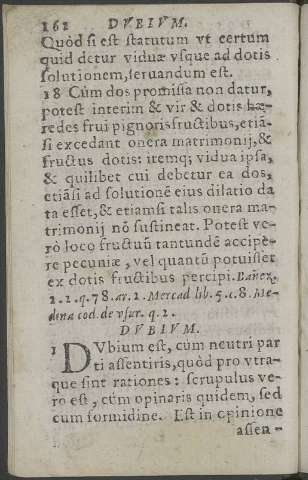 162 DVBIVM.
Quòd si est statutum vt certum
quid detur viduæ vsque ad dotis
solutionem, seruandum est.
18 Cùm dos promissa non datur,
potest interim & vir & dotis hæ-
redes frui pignoris fructibus, etiã-
si excedant onera matrimonij, &
fructus dotis: itemq; vidua ipsa,
& quilibet cui debetur ea dos,
etiãsi ad solutionẽ eius dilatio da
ta esset, & etiamsi talis onera ma-
trimonij nõ sustineat. Potest ve-
rò loco fructuũ tantundẽ accipe-
re pecuniæ, vel quantũ potuisset
ex dotis fructibus percipi. Bañez
2. 2. q. 78. ar. 2. Mercad lib. 5. c. 8. Me-
dina cod. de vsur. q. 2.
DVBIVM.
1 DVbium est, cùm neutri par
ti assentiris, quòd pro vtra-
que sint rationes: scrupulus ve-
rò est, cùm opinaris quidem, sed
cum formidine. Est in opinione
assen-